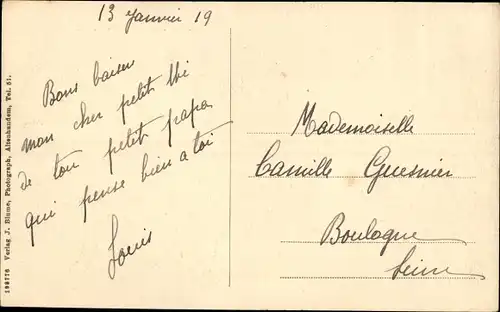 13 Janvier 19
Bons baiser
mon cher petit
de ton petit papa
qui pense bien a toi
Louis
Mademoiselle
Camille Guesnier
Boulogne
Seine
198776 Verlag J. Blume, Photograph, Altenhundem, Tel. 51.